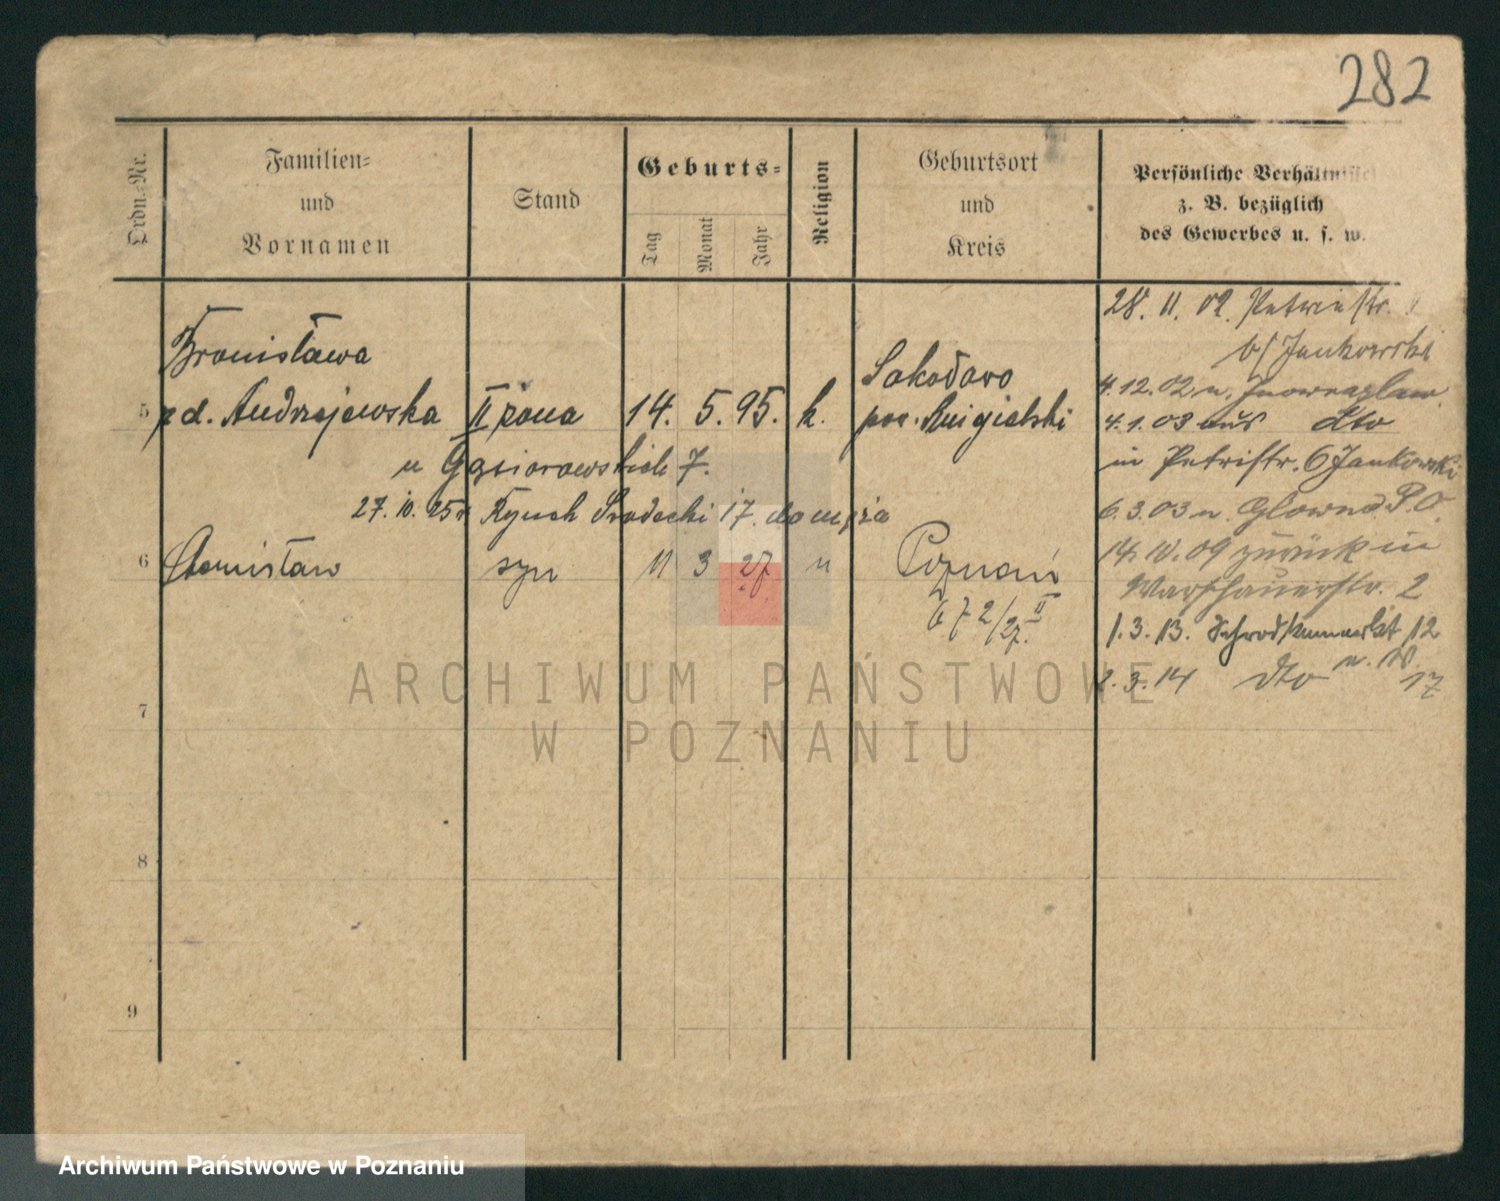 282
Ordn.-Nr.
Familien-
und
Vornamen
Stand
Geburts-
Tag
Monat
Jahr
Religion
Geburtsort
und
Kreis
Persönliche Verhältnisse
z. B. bezüglich
des Gewerbes u. s. w.
Bronisława
5 zd. Andrzejewska II żona 14. 5. 95. k.
Sokołowo
pow.
u Gąsiorowskich 7.
27. 10. 25 r. Rynek Śródecki 17. do męża
6 Stanisław syn 11 3 27 " Poznań
672/27. II
28. 11. 02. Petristr.
b/ Jankowski
4. 12. 02 n. Inowrazlaw
4. 1. 03 aus dto
in Petristr. 6 Jankowski
6. 3. 03 n. Glowno P. O.
14. 10. 09 zurück in
Warschauerstr. 2
1. 3. 13. 12
3. 14 dto 17
7
8
9
ARCHIWUM PAŃSTWOWE
W POZNANIU
Archiwum Państwowe w Poznaniu